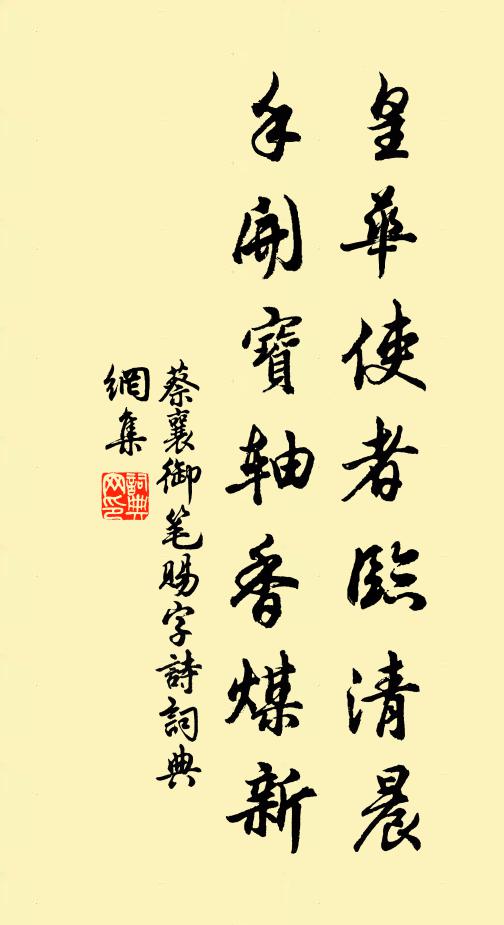 皇華使者臨清晨
手開寶軸香煤新
蔡襄御笔賜字詩詞典
網集
詞典
网印